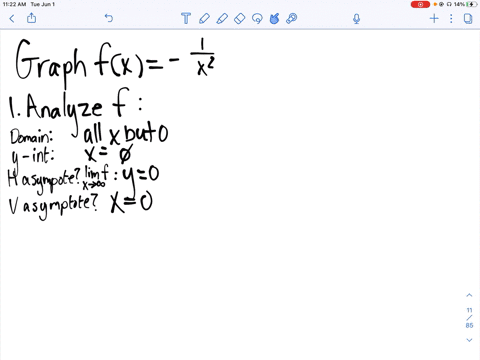 11:22 AM Tue Jun 1
14%
Graph f(x) = - 1/x²
1. Analyze f :
Domain: all x but 0
y-int: x = ∅
H asympote? lim f x→∞ : y = 0
V asymptote? x = 0
11
/
85